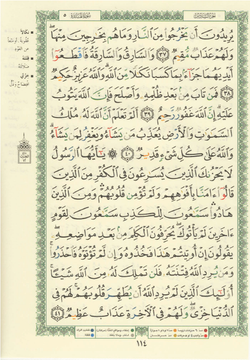 يُرِيدُونَ أَن يَخْرُجُوا۟ مِنَ ٱلنَّارِ وَمَا هُم بِخَٰرِجِينَ مِنْهَا
وَلَهُمْ عَذَابٌ مُّقِيمٌ ٣٧ وَٱلسَّارِقُ وَٱلسَّارِقَةُ فَٱقْطَعُوٓا۟
أَيْدِيَهُمَا جَزَآءًۢ بِمَا كَسَبَا نَكَٰلًا مِّنَ ٱللَّهِ وَٱللَّهُ عَزِيزٌ حَكِيمٌ
٣٨ فَمَن تَابَ مِنۢ بَعْدِ ظُلْمِهِۦ وَأَصْلَحَ فَإِنَّ ٱللَّهَ يَتُوبُ
عَلَيْهِ إِنَّ ٱللَّهَ غَفُورٌ رَّحِيمٌ ٣٩ أَلَمْ تَعْلَمْ أَنَّ ٱللَّهَ لَهُۥ مُلْكُ
ٱلسَّمَٰوَٰتِ وَٱلْأَرْضِ يُعَذِّبُ مَن يَشَآءُ وَيَغْفِرُ لِمَن يَشَآءُ
وَٱللَّهُ عَلَىٰ كُلِّ شَىْءٍ قَدِيرٌ ٤٠ يَٰٓأَيُّهَا ٱلرَّسُولُ
لَا يَحْزُنكَ ٱلَّذِينَ يُسَٰرِعُونَ فِى ٱلْكُفْرِ مِنَ ٱلَّذِينَ
قَالُوٓا۟ ءَامَنَّا بِأَفْوَٰهِهِمْ وَلَمْ تُؤْمِن قُلُوبُهُمْ وَمِنَ ٱلَّذِينَ
هَادُوا۟ سَمَّٰعُونَ لِلْكَذِبِ سَمَّٰعُونَ لِقَوْمٍ
ءَاخَرِينَ لَمْ يَأْتُوكَ يُحَرِّفُونَ ٱلْكَلِمَ مِنۢ بَعْدِ مَوَاضِعِهِۦ
يَقُولُونَ إِنْ أُوتِيتُمْ هَٰذَا فَخُذُوهُ وَإِن لَّمْ تُؤْتَوْهُ فَٱحْذَرُوا۟
وَمَن يُرِدِ ٱللَّهُ فِتْنَتَهُۥ فَلَن تَمْلِكَ لَهُۥ مِنَ ٱللَّهِ شَيْـًٔا
أُو۟لَٰٓئِكَ ٱلَّذِينَ لَمْ يُرِدِ ٱللَّهُ أَن يُطَهِّرَ قُلُوبَهُمْ لَهُمْ فِى
ٱلدُّنْيَا خِزْىٌ وَلَهُمْ فِى ٱلْءَاخِرَةِ عَذَابٌ عَظِيمٌ ٤١
١١٤